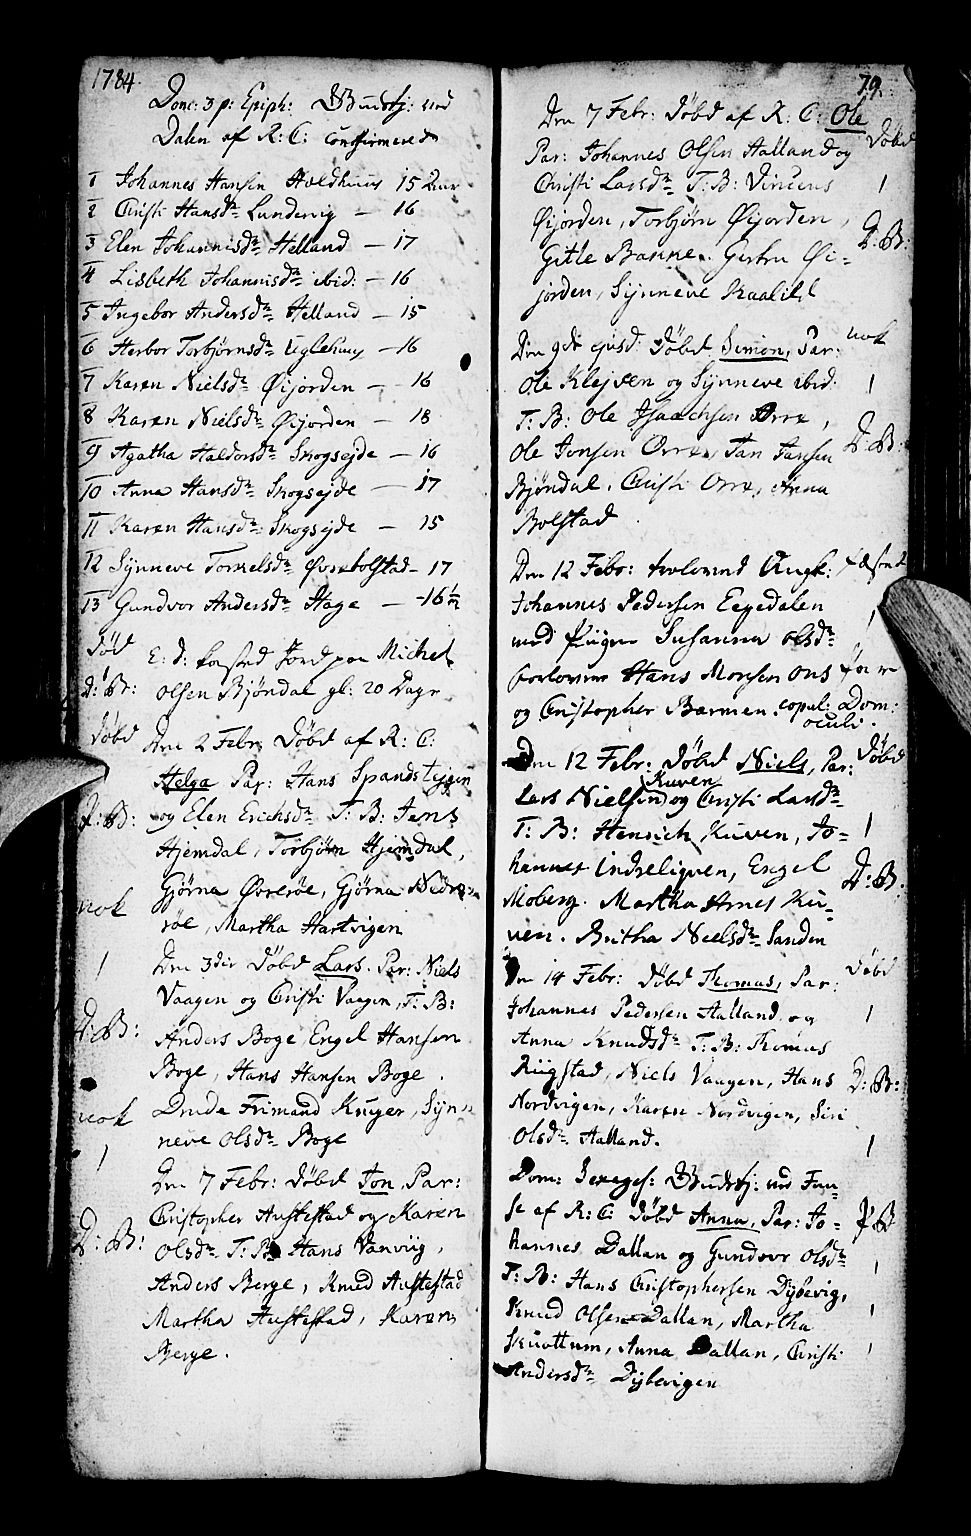 1784
Dom: 3 p: Epiph: Gudstj: ved
Dalen af R: C: Confirmerede
1 Johannes Hansen Holdhuus 15 Aar
2 Christi Hansdr Lundervig — 16
3 Elen Johannisdr Helland — 17
4 Lisbeth Johannisdr ibid: — 16
5 Ingebor Andersdr Helland — 15
6 Herbor Torbjørnsdr Uglehuus — 16
7 Karen Nielsdr Øijorden — 16
8 Karen Nielsdr Øijorden — 18
9 Agatha Haldorsdr Skogsejde — 16
10 Anna Hansdr Skogsejde — 17
11 Karen Hansdr Skogsejde — 15
12 Synneve Torkelsdr Øvrebolstad — 17
13 Gundvor Andersdr Hage — 16 1/2
Død
E: d: kasted Jord paa Michel
D: B: Olsen Bjøndal gl: 20 Dage
Døbd
Den 2 Febr: Døbd af R: C:
Helga Par: Hans Spandstejgen
D: B: og Elen Erichsdr T: B: Jens
Hjemdal, Torbjørn Hjemdal,
Gjørna Øvrerøe, Gjørna Nedre
uok
røe, Martha Hartvigen
1 Den 3die Døbd Lars. Par: Niels
Vaagen og Christi Vaagen, T: B:
D: B: Anders Boge Engel Hansen
Boge, Hans Hansen Boge.
uok Drude Frimand Kuger, Syn
neve Olsdr Boge
1
Den 7 Febr: Døbd Jon, Par:
Christopher Austestad og Karen
D: B: Olsdr T: B: Hans Vanviig,
Anders Berge, Knud Austestad
Martha Austestad, Karen
Berge.
79.
Den 7 Febr: Døbd af R: C: Ole
Døbd
Par: Johannes Olsen Halland og
Christi Larsdr T: B: Vincens
1
Øijorden, Torbjørn Øijorden,
D: B:
Gitle Banne. Gertru Øi-
jorden, Synneve Kaalild
uok
Den 9de ejusd: Døbd Simon, Par:
Ole Klejven og Synneve ibid:
1
T: B: Ole Isaachsen Orre,
Ole Jonsen Orre, Jan Jansen
D: B:
Bjøndal. Christi Orre, Anna
Bolstad
Den 12 Febr: trolovend Ungk: fæsted
Johannes Pedersen Eegedalen
1
med Pigen Susanna Olsdr
Forlovere Hans Monsen Ous
og Christopher Barmen. copul: Dom:
oculi.
Den 12 Febr: Døbd Niels, Par:
Døbd
Kuven
Lars Nielsen og Christi Larsdr
T: B: Henrich Kuven, Jo-
1
hannes Indreligven, Engel
D: B:
Moberg. Martha Arnes Ku-
ven. Britha Nielsdr Sanden
Den 14 Febr: Døbd Thomas, Par:
Døbd
Johannes Pedersen Halland og
1
Anna Knudsdr T: B: Thomas
Rugstad, Niels Vaagen, Hans
D: B:
Nordvigen, Karen Nordvigen, Siri
Olsdr Halland.
1
Dom: Sexages: Gudstj: ved Fu-
se af R: C: Døbd Anna, Par: Jo-
D: B:
hannes Dallan og Gundvor Olsdr
1
T: B: Hans Christophersen Dybevig,
Knud Olsen Dallan, Martha
1
Skuottum, Anna Dallan, Christi
1
Andersdr Dybevigen